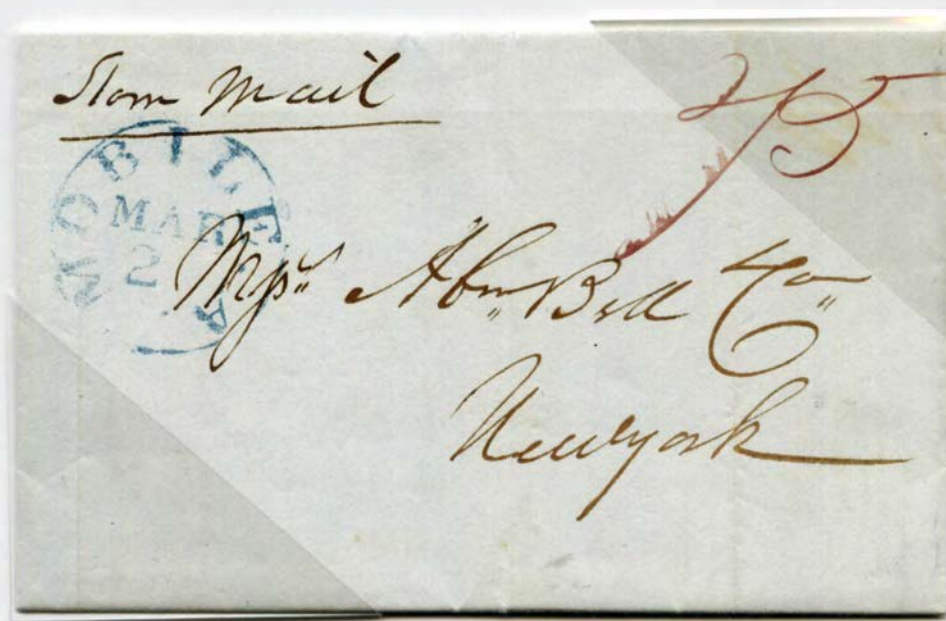 Slow Mail
25
MOBILE
MAR
2
A
Messrs Abm Bell & Co
New york